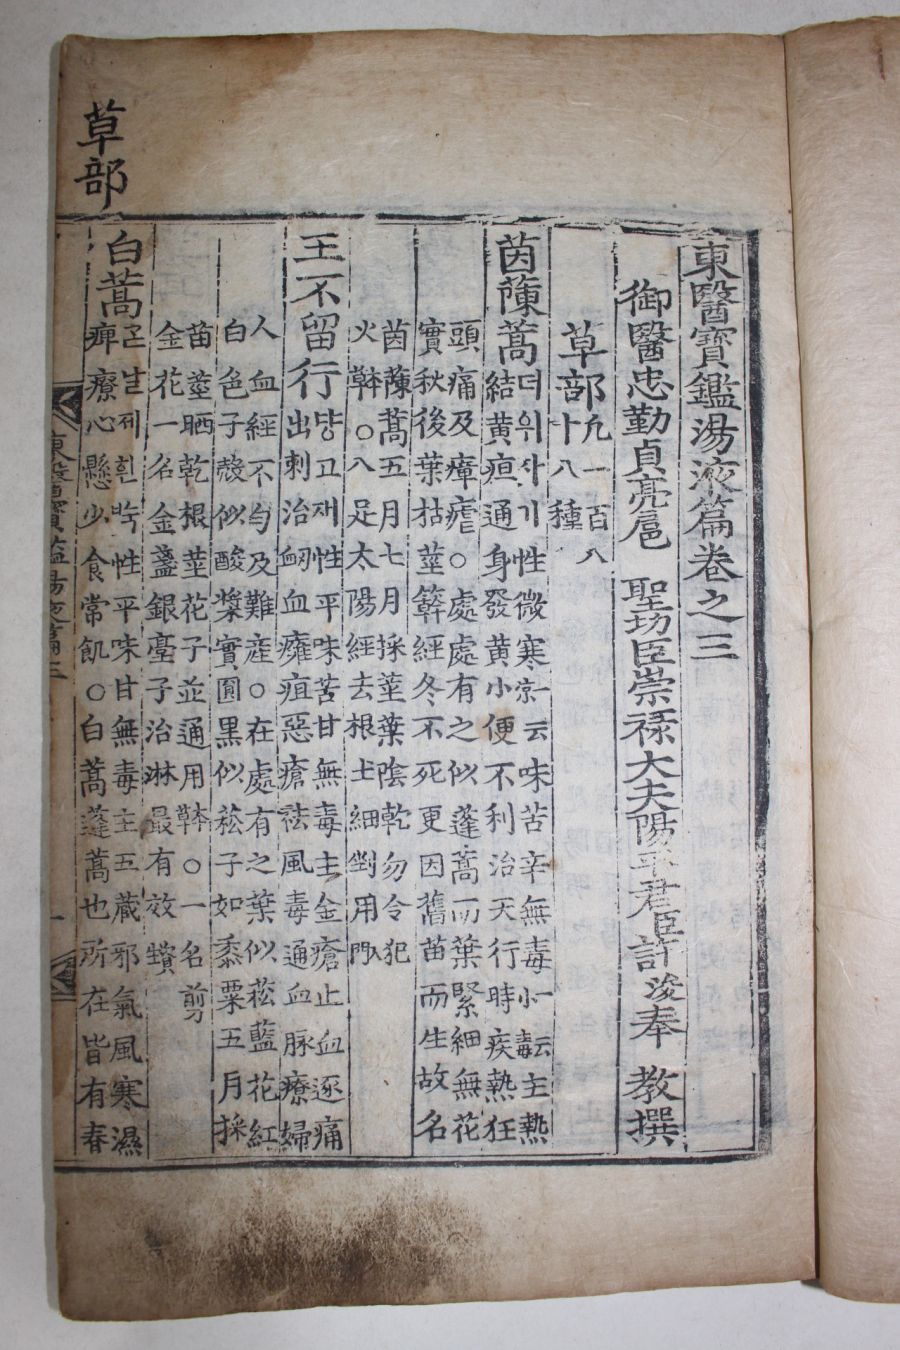 東醫寶鑑湯液篇卷之三
御醫忠勤貞亮扈 聖功臣崇祿大夫陽平君臣許浚奉 教撰
草部凡一百八
十八種
茵蔯蒿더위자기性微寒一云凉味苦辛無毒一云小毒主熱
結黃疸通身發黃小便不利治天行時疾熱狂
頭痛及瘴瘧○處處有之似蓬蒿而葉緊細無花
實秋後葉枯莖簳經冬不死更因舊苗而生故名
茵蔯蒿五月七月採莖葉陰乾勿令犯
火本草○入足太陽經去根土細剉用入門
王不留行댱고재性平味苦甘無毒主金瘡止血逐痛
出刺治衄血癰疽惡瘡祛風毒通血脉療婦
人血經不勻及難産○在處有之葉似菘藍花紅
白色子殼似酸漿實圓黑似菘子如黍粟五月採
苗莖晒乾根莖花子並通用本草○一名剪
金花一名金盞銀臺子治淋最有效資生
白蒿흰ᄡᅮᆨ性平味甘無毒主五藏邪氣風寒濕
痺療心懸少食常飢○白蒿蓬蒿也所在皆有春
東醫寶鑑湯液篇三
一
草部